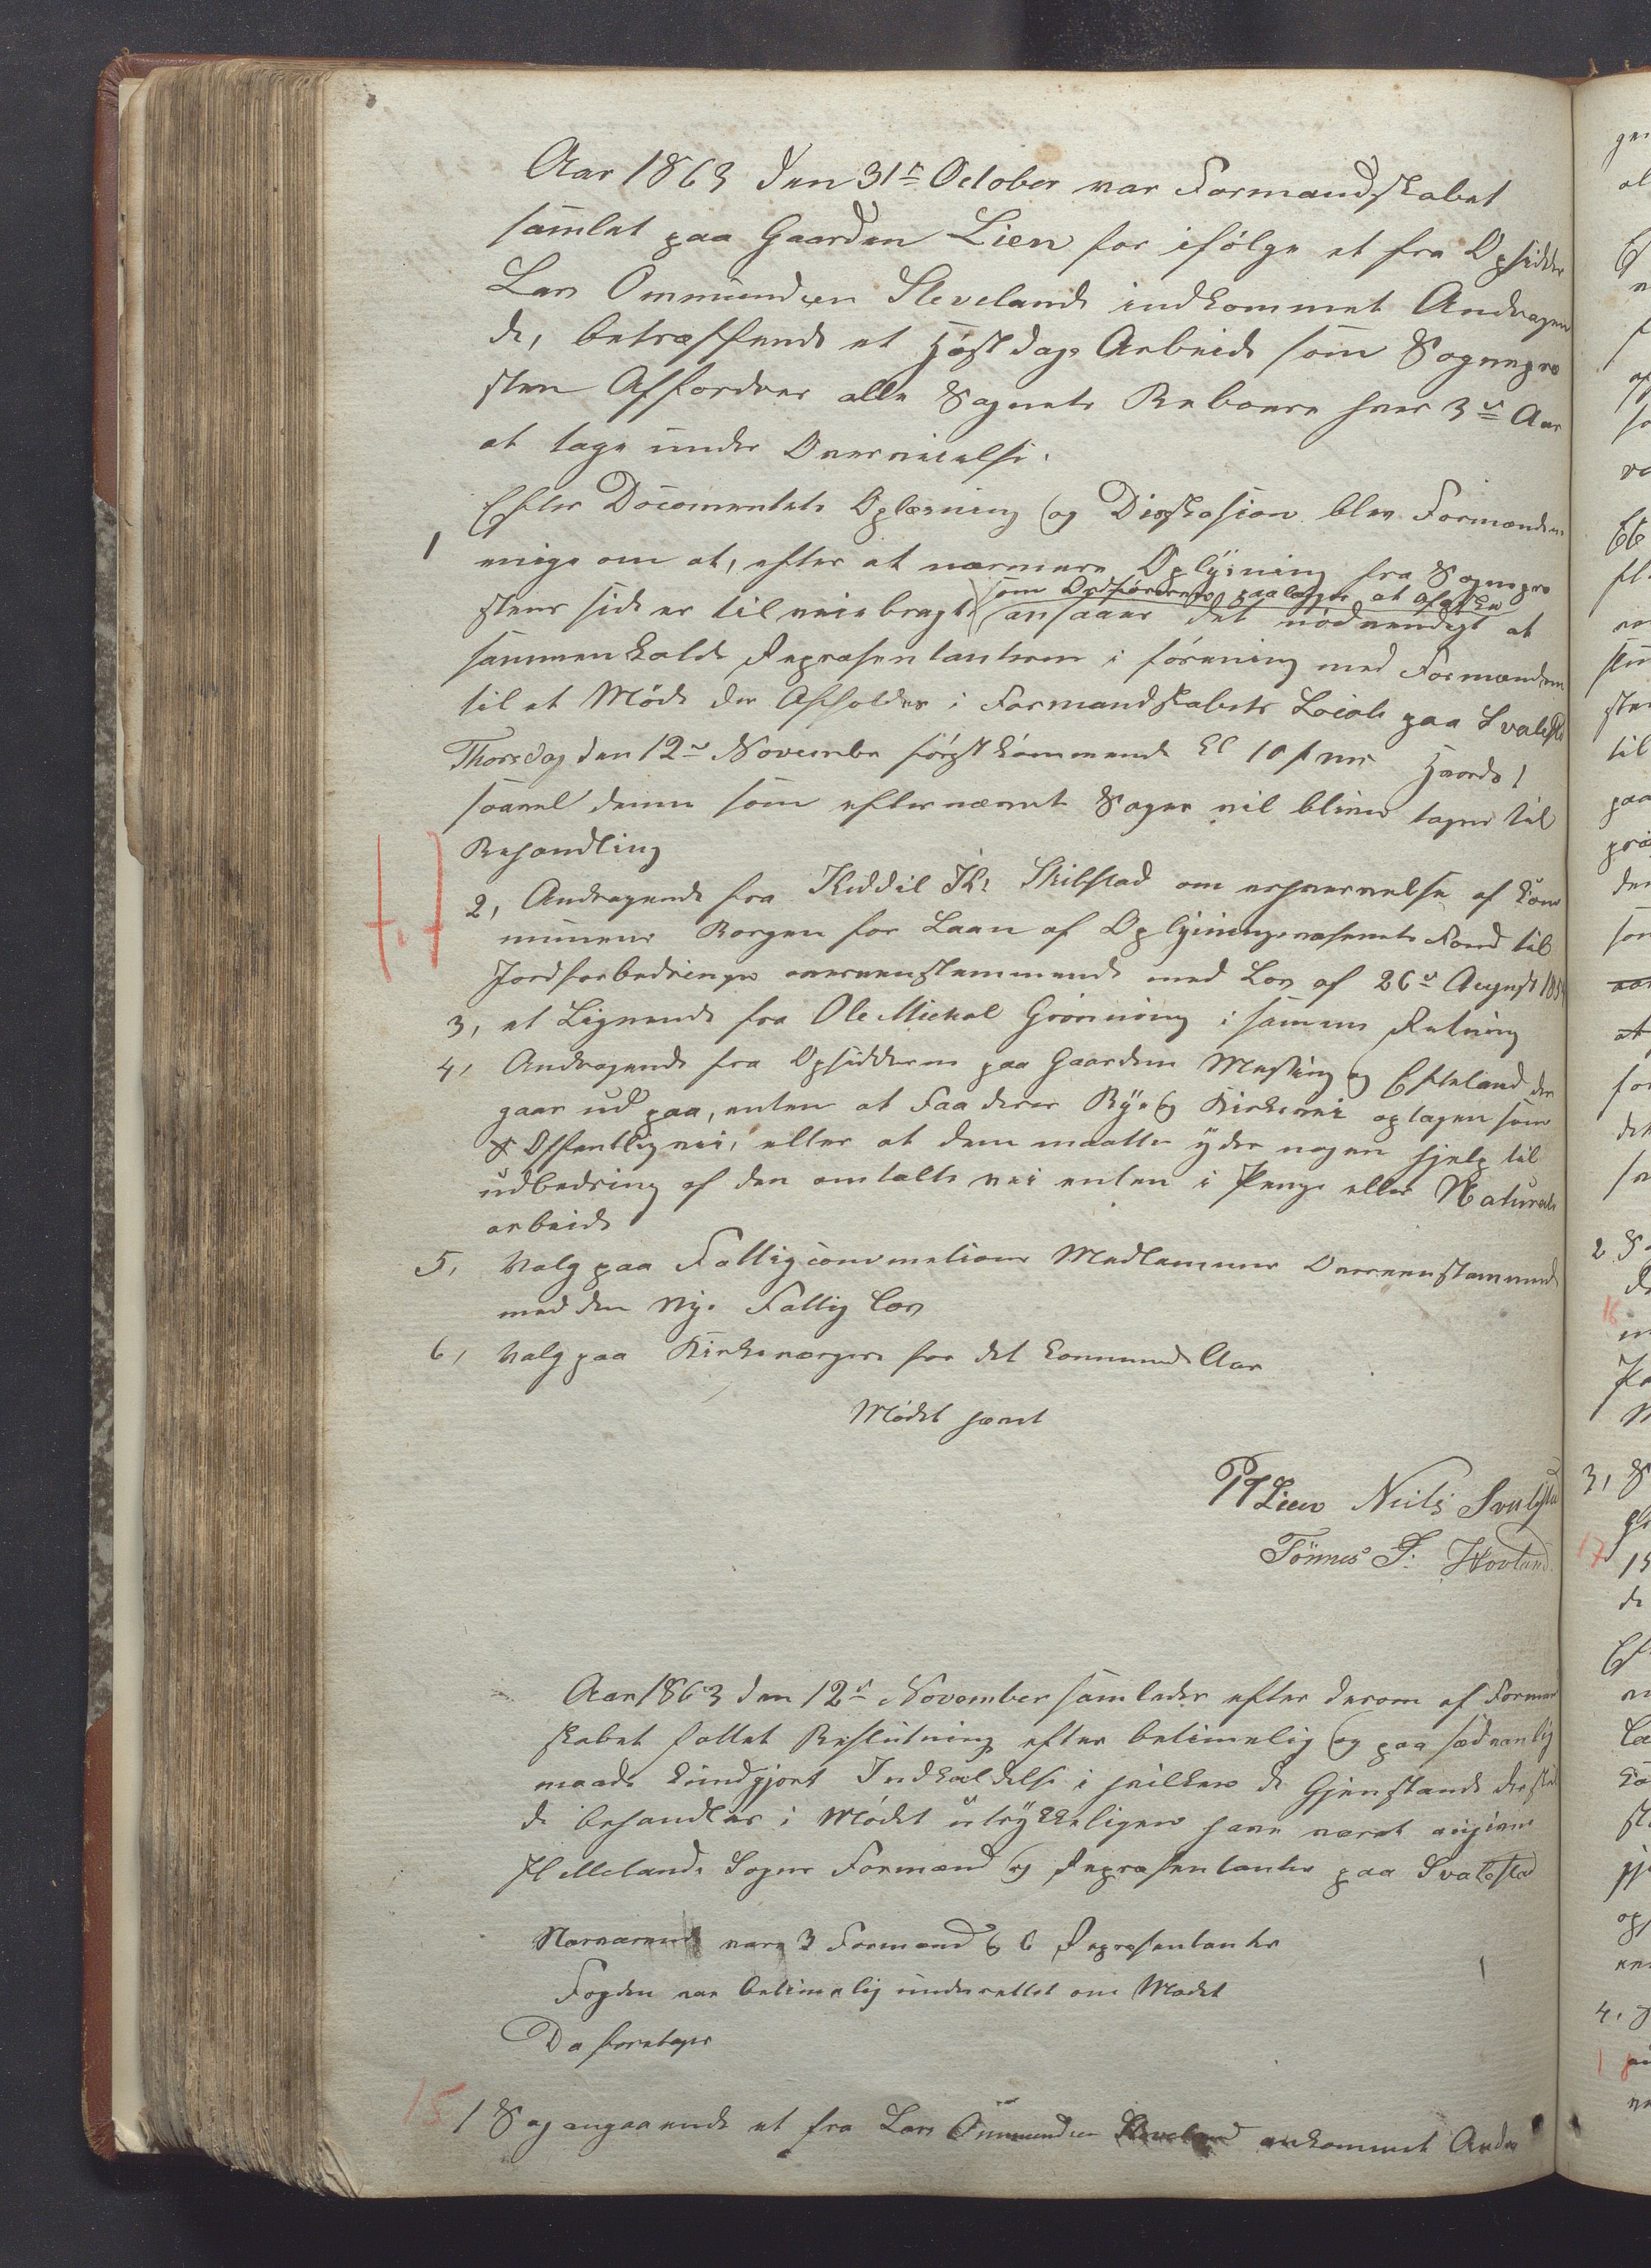 Aar 1863 den 31te October var Formandskabet
samlet paa Gaarden Lien for ifölge et fra Opsidder
Lars Ommundsen Sleveland indkommet Andragen
de, betræffende et Höstdags Arbeide som Sognepre
sten Affordrer alle Sognets Beboere hver 3die Aar
at tage under Overveielse.
Efter Documentets Oplæsning og Diskusion blev Formændene
1 enige om at, efter at nærmere Oplysning fra Sognepre
som Ordförerens paalæges at afæske
stens side er tilveiebragt ansaaes det nödvendigt at
sammenkalde Repræsentanterne i forening med Formændene
til et Möde der Afholdes i Formandskabets Locale paa Svalest
Thorsdag den 12te November förstkommende Kl 10 fm Hvorda 1
saavel denne som efternævnte Sager vil blive tagen til
Behandling
2, Andragende fra Kiddil Skilstad om erhvervelse af Kom
munens Borgen for Laan af Oplysningsvæsenets Fond til
Jordforbedringer overeenstemmende med Lov af 26de August 185
3, et Lignende fra Ole Mickal Grönning i samme Retning
4, Andragende fra Opsidderne paa Gaardene Mysing og Efteland der
gaar ud paa, enten at faa deres Bye og Kirkevei optagen som
Offentlig vei, eller at dem maatte yde nogen hjelp til
udbedring af den omtalte vei enten i Penge eller Natural
arbeide
5, Valg paa Fattigcommissions Medlemmer Overeenstemmende
med den Nye Fattig Lov
6, Valg paa Kirkeværger for det kommende Aar
Mödet hævet
P Lien Niels Svalesta
Tönnes T. Hovland
Aar 1863 den 12te November samledes efter derom af Forman
skabet fattet Beslutning efter betimelig og paa sædvanlig
maade kundgjort Indkaldelse i hvilken de Gjenstande der skul
de behandles i Mödet udtrykkeligen have været angivne
Hellelands Sogns Formænd og Repræsentanter paa Svalestad
Nærværende vare 3 Formænd & 6 Repræsentanter
Fogden var betimelig underrettet om Mödet
Da foretoges
15 1 Sag angaaende et fra Lars Ommundsen Sleveland ankommet Andra